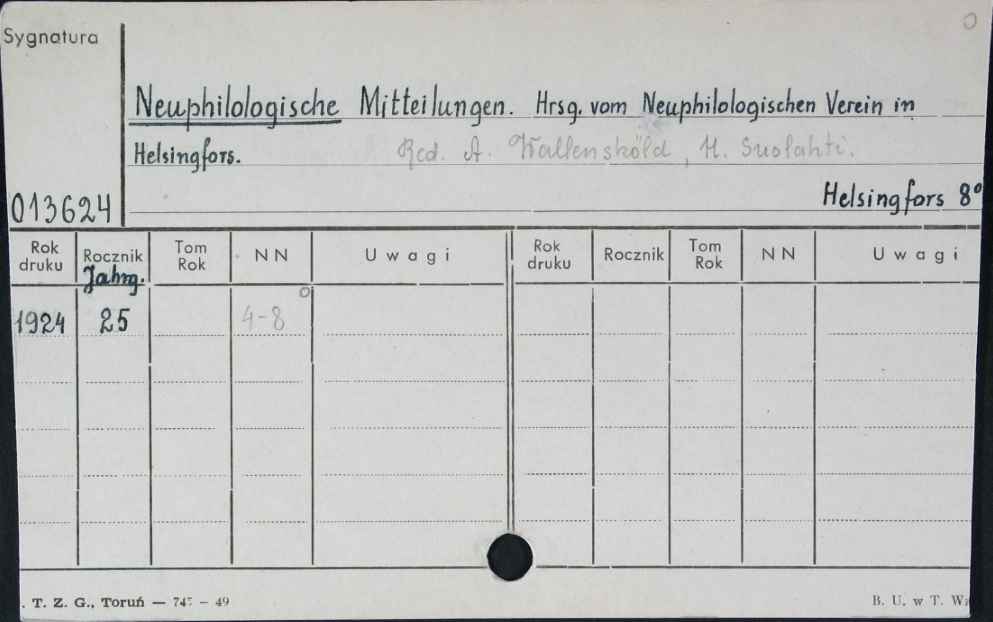 Sygnatura
Neuphilologische Mitteilungen. Hrsg. vom Neuphilologischen Verein in
Helsingfors. Red. A. Wallensköld, H. Suolahti.
013624
Helsingfors 8°
Rok druku Rocznik Tom Rok NN Uwagi Rok druku Rocznik Tom Rok NN Uwagi
Jahrg.
1924 25 4-8
. T. Z. G., Toruń — 745 – 49 B. U. w T.